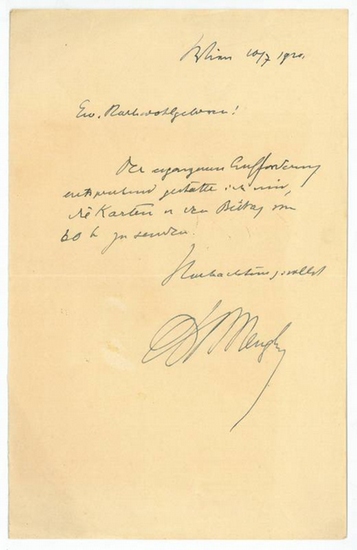 Wien 10/7 1920.
Ew. Hochwohlgeboren!
Der ergangenen Aufforderung
entsprechend gestatte ich mir,
die Karten u den Betrag von
60 h zu senden.
Hochachtungsvollst